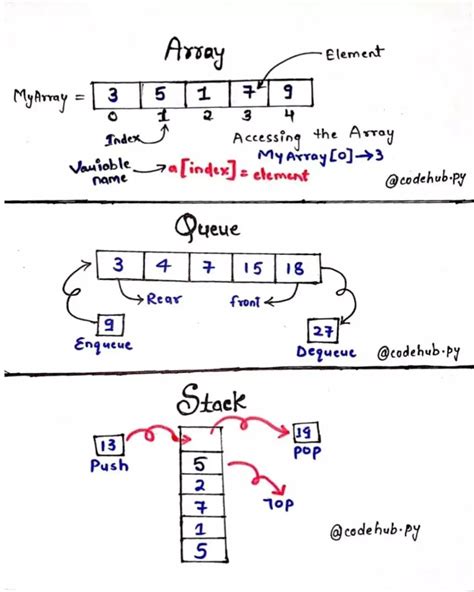 Array
Element
MyArray = 3 5 1 7 9
0 1 2 3 4
Index
Accessing the Array
MyArray[0]→3
Variable name → a[index] = element
@codehub.py
Queue
3 4 7 15 18
Rear
front
9
27
Enqueue
Dequeue
@codehub.py
Stack
13
19
Push
pop
5
2
7
1
5
Top
@codehub.py